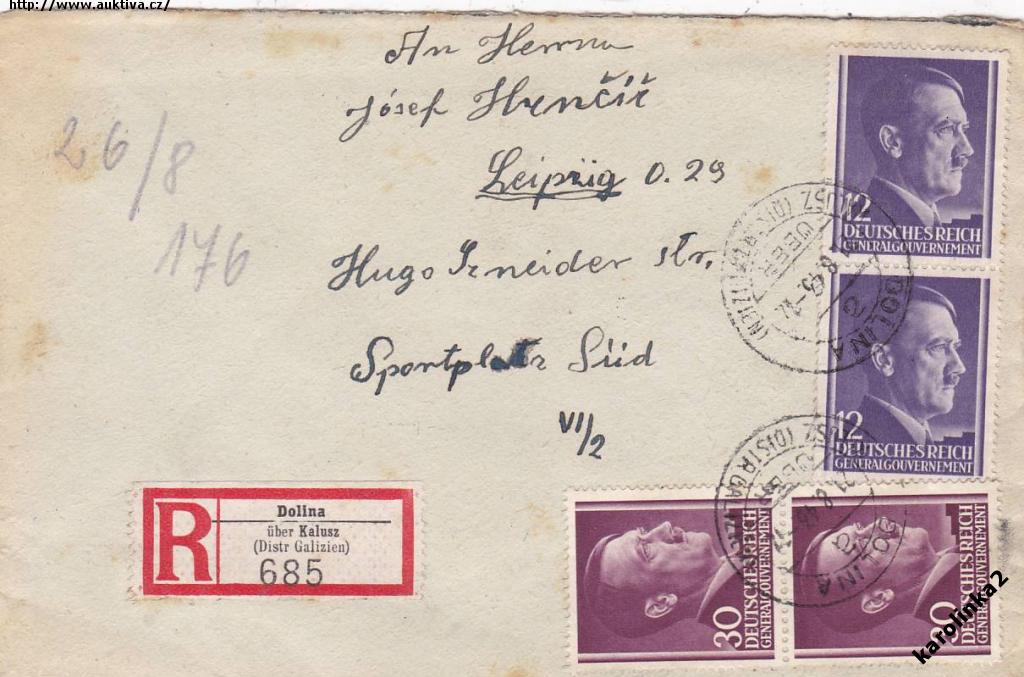 http://www.auktiva.cz/
An Herrna
Józef Hrnčíř
Leipzig O. 29
Hugo Szneider str.
Sportplatz Süd
VI/2
26/8
176
12
DEUTSCHES REICH
GENERALGOUVERNEMENT
12
DEUTSCHES REICH
GENERALGOUVERNEMENT
30
DEUTSCHES REICH
GENERALGOUVERNEMENT
30
DEUTSCHES REICH
GENERALGOUVERNEMENT
DOLINA
DOLINA
R
Dolina
über Kalusz
(Distr Galizien)
685
karolinka2